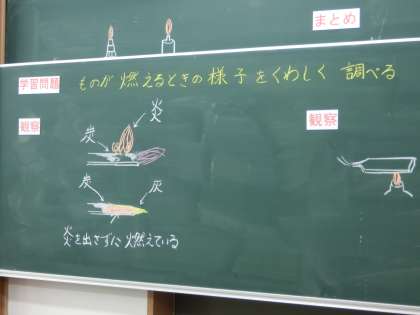 まとめ
学習問題
ものが燃えるときの様子をくわしく調べる
観察
炭
炎
炭
灰
炎を出さずに燃えている
観察